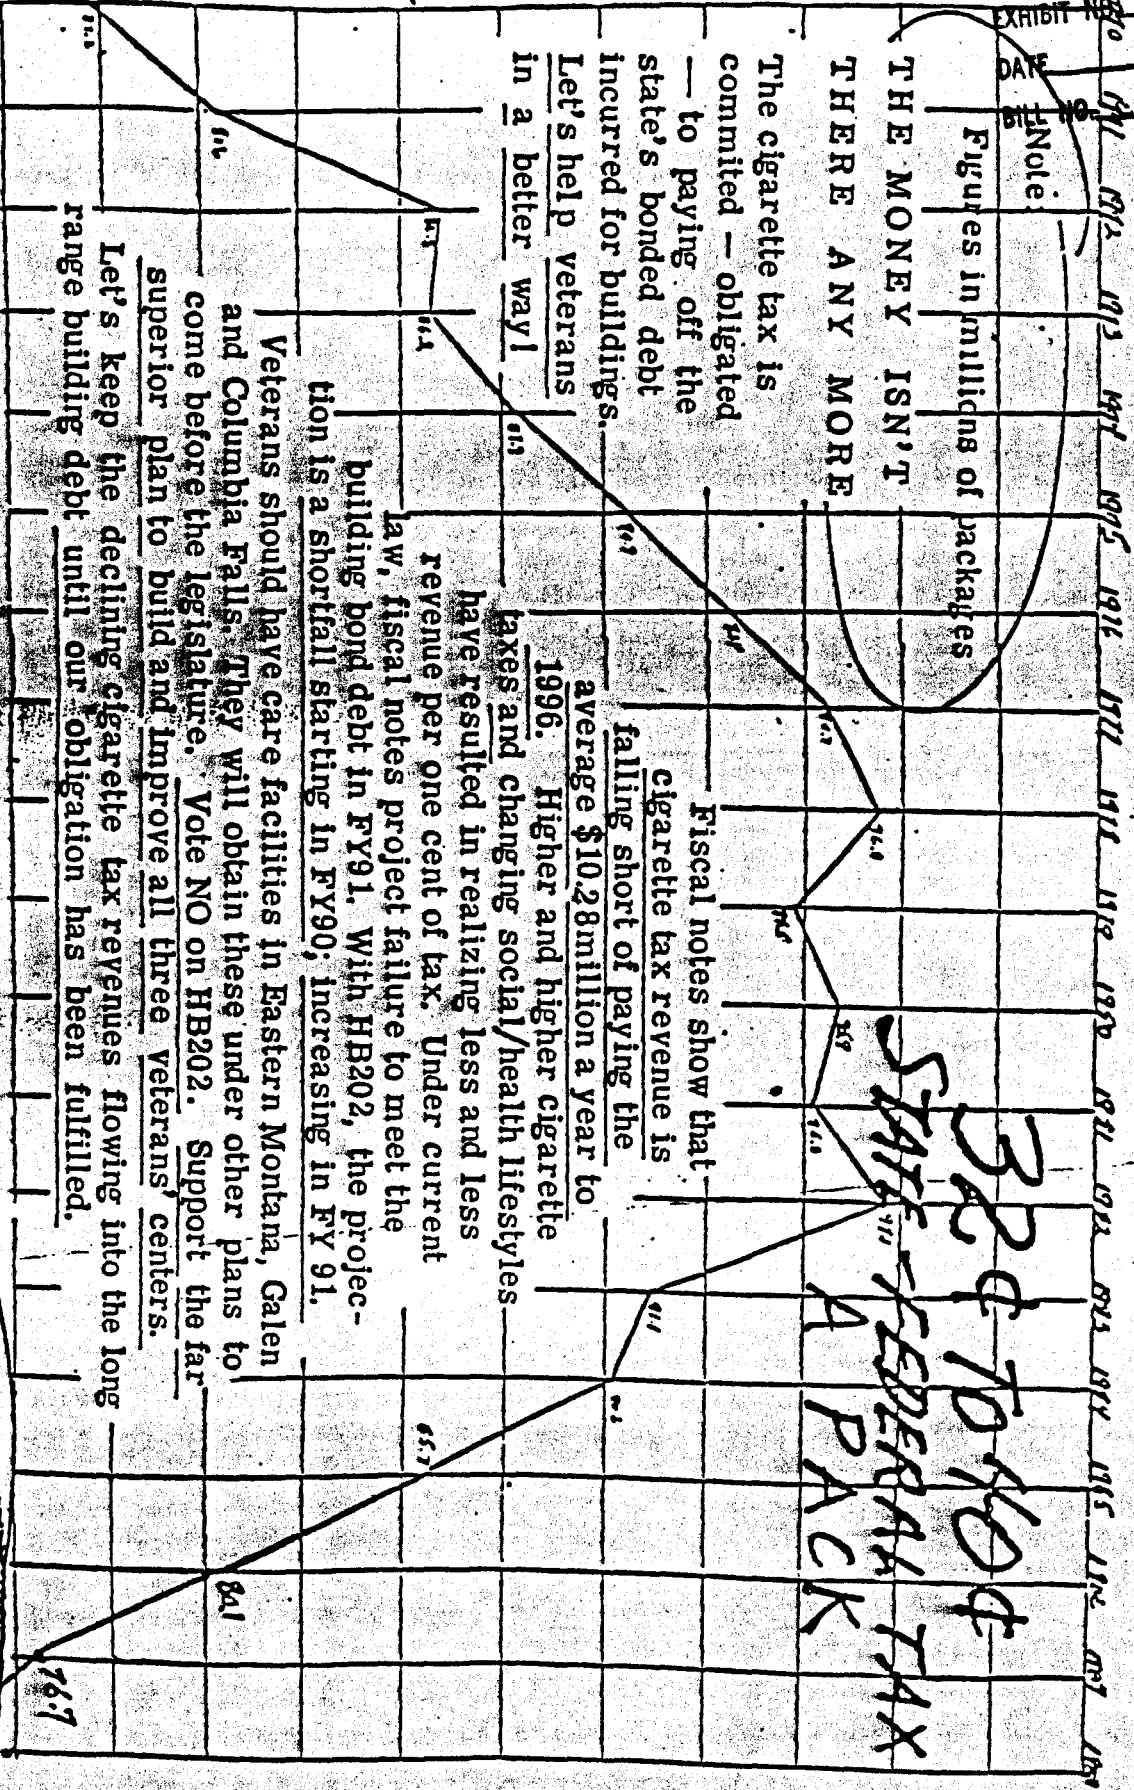 EXHIBIT NO
DATE
BILL NO.
1970 1971 1972 1973 1974 1975 1976 1977 1978 1979 1980 1981 1982 1983 1984 1985 1986 1987
Note:
Figures in millions of packages
THE MONEY ISN'T
THERE ANY MORE
38¢ TO 40¢
STATE-FEDERAL TAX
A PACK
The cigarette tax is
commited — obligated
— to paying off the
state's bonded debt
incurred for buildings.
Let's help veterans
in a better way!
Fiscal notes show that
cigarette tax revenue is
falling short of paying the
average $10.28million a year to
1996. Higher and higher cigarette
taxes and changing social/health lifestyles
have resulted in realizing less and less
revenue per one cent of tax. Under current
law, fiscal notes project failure to meet the
building bond debt in FY91. With HB202, the projec-
tion is a shortfall starting in FY90; increasing in FY 91.
Veterans should have care facilities in Eastern Montana, Galen
and Columbia Falls. They will obtain these under other plans to
come before the legislature. Vote NO on HB202. Support the far
superior plan to build and improve all three veterans' centers.
Let's keep the declining cigarette tax revenues flowing into the long
range building debt until our obligation has been fulfilled.
91.1
85.7
76.7